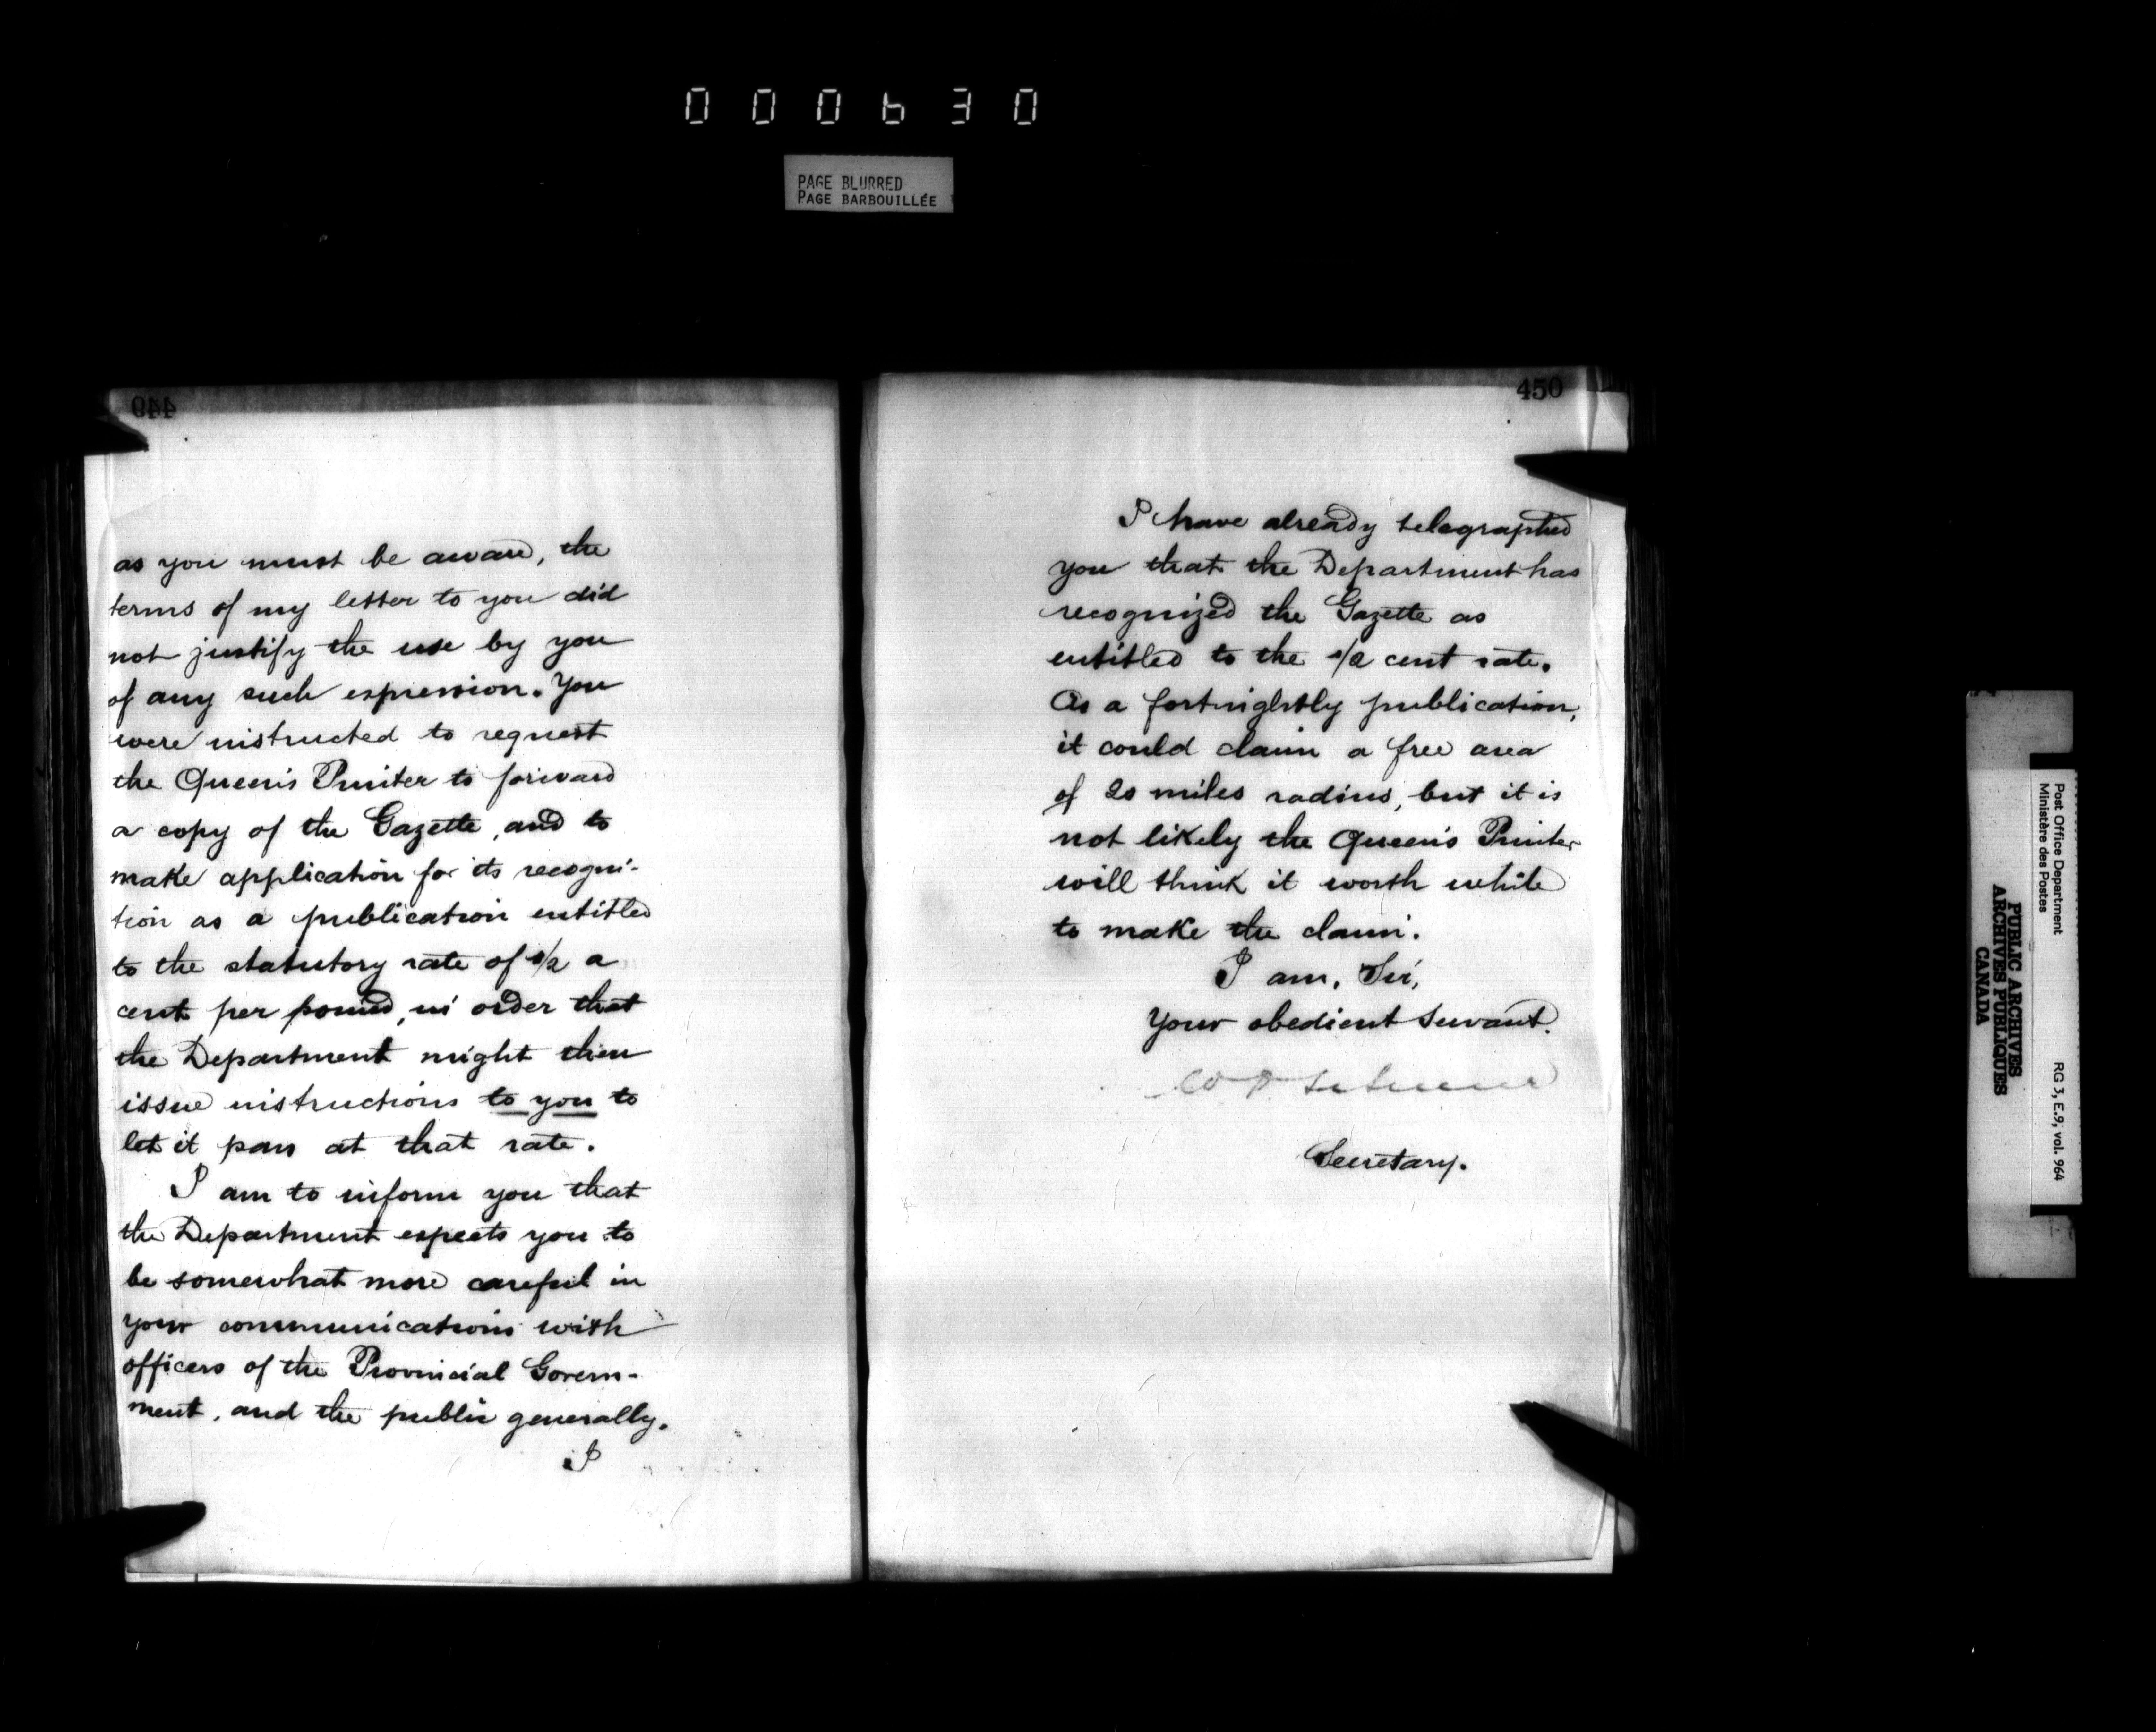 000630
PAGE BLURRED
PAGE BARBOUILLÉE
449
as you must be aware, the
terms of my letter to you did
not justify the use by you
of any such expression. You
were instructed to request
the Queen's Printer to forward
a copy of the Gazette, and to
make application for its recogni-
tion as a publication entitled
to the statutory rate of 1/2 a
cent per pound, in order that
the Department might then
issue instructions to you to
let it pass at that rate.
I am to inform you that
the Department expects you to
be somewhat more careful in
your communications with
officers of the Provincial Govern-
ment, and the public generally.
I
450
I have already telegraphed
you that the Department has
recognized the Gazette as
entitled to the 1/2 cent rate.
As a fortnightly publication,
it could claim a free area
of 20 miles radius, but it is
not likely the Queen's Printer
will think it worth while
to make the claim.
I am, Sir,
Your obedient Servant.
Secretary.
Post Office Department
Ministère des Postes
RG 3, E.9, vol. 964
PUBLIC ARCHIVES
ARCHIVES PUBLIQUES
CANADA